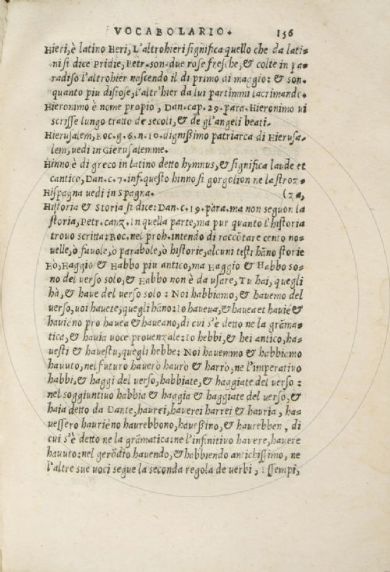 VOCABOLARIO. 156
Hieri, è latino Heri, L'altrohieri significa quello che da lati-
ni si dice Pridie, Petr. son. due rose fresche, & colte in pa-
radiso l'altrohier nascendo il di primo di maggio: & son.
quanto piu disiose, l'altr'hier da lui partimmi lacrimando
Hieronimo è nome proprio, Dan. cap. 29. para. Hieronimo ui
scrisse lungo tratto de secoli, & de gl'angeli beati.
Hierusalem, Boc. g. 6. n. 10. dignissimo patriarca di Hierusa-
lem, uedi in Gierusalemme.
Hinno è di greco in latino detto hymnus, & significa laude et
cantico, Dan. c. 7. inf. questo hinno si gorgolion ne la stroz-
Hispagna uedi in Spagna. (za,
Historia & Storia si dice: Dan. c. 19. para. ma non seguon la
storia, Petr. canz. In quella parte, ma pur quanto l'historia
trouo scritta: Boc. nel proh. intendo di raccōtare cento no-
uelle, ò fauole, ò parabole, ò historie, alcuni testi hāno storie
Hò, Haggio & Habbo piu antico, ma Haggio & Habbo so-
no del uerso solo, & Habbo non è da usare, Tu hai, quegli
hà, & haue del uerso solo: Noi habbiamo, & hauemo del
uerso, uoi hauete, quegli hāno: Io haueua, & hauea et hauie &
hauieno pro hauea & haueano, di cui s'è detto ne la grāma-
tica, & hauia uoce prouenzale: Io hebbi, & hei antico, ha-
uesti & hauestu, quegli hebbe: Noi hauemmo & habbiamo
hauuto, nel futuro hauerò haurò & harrò, ne l'imperatiuo
habbi, & haggi del uerso, habbiate, & haggiate del uerso:
nel soggiuntiuo habbia & haggia & haggiate del uerso, &
haia detto da Dante, haurei, hauerei harrei & hauria, ha-
uessero haurieno haurebbono, haußino, & haurebben, di
cui s'è detto ne la grāmatica: ne l'infinitiuo hauere, hauere
hauuto: nel gerōdio hauendo, & habbiendo antichissimo, ne
l'altre sue uoci segue la seconda regola de uerbi, essempi,